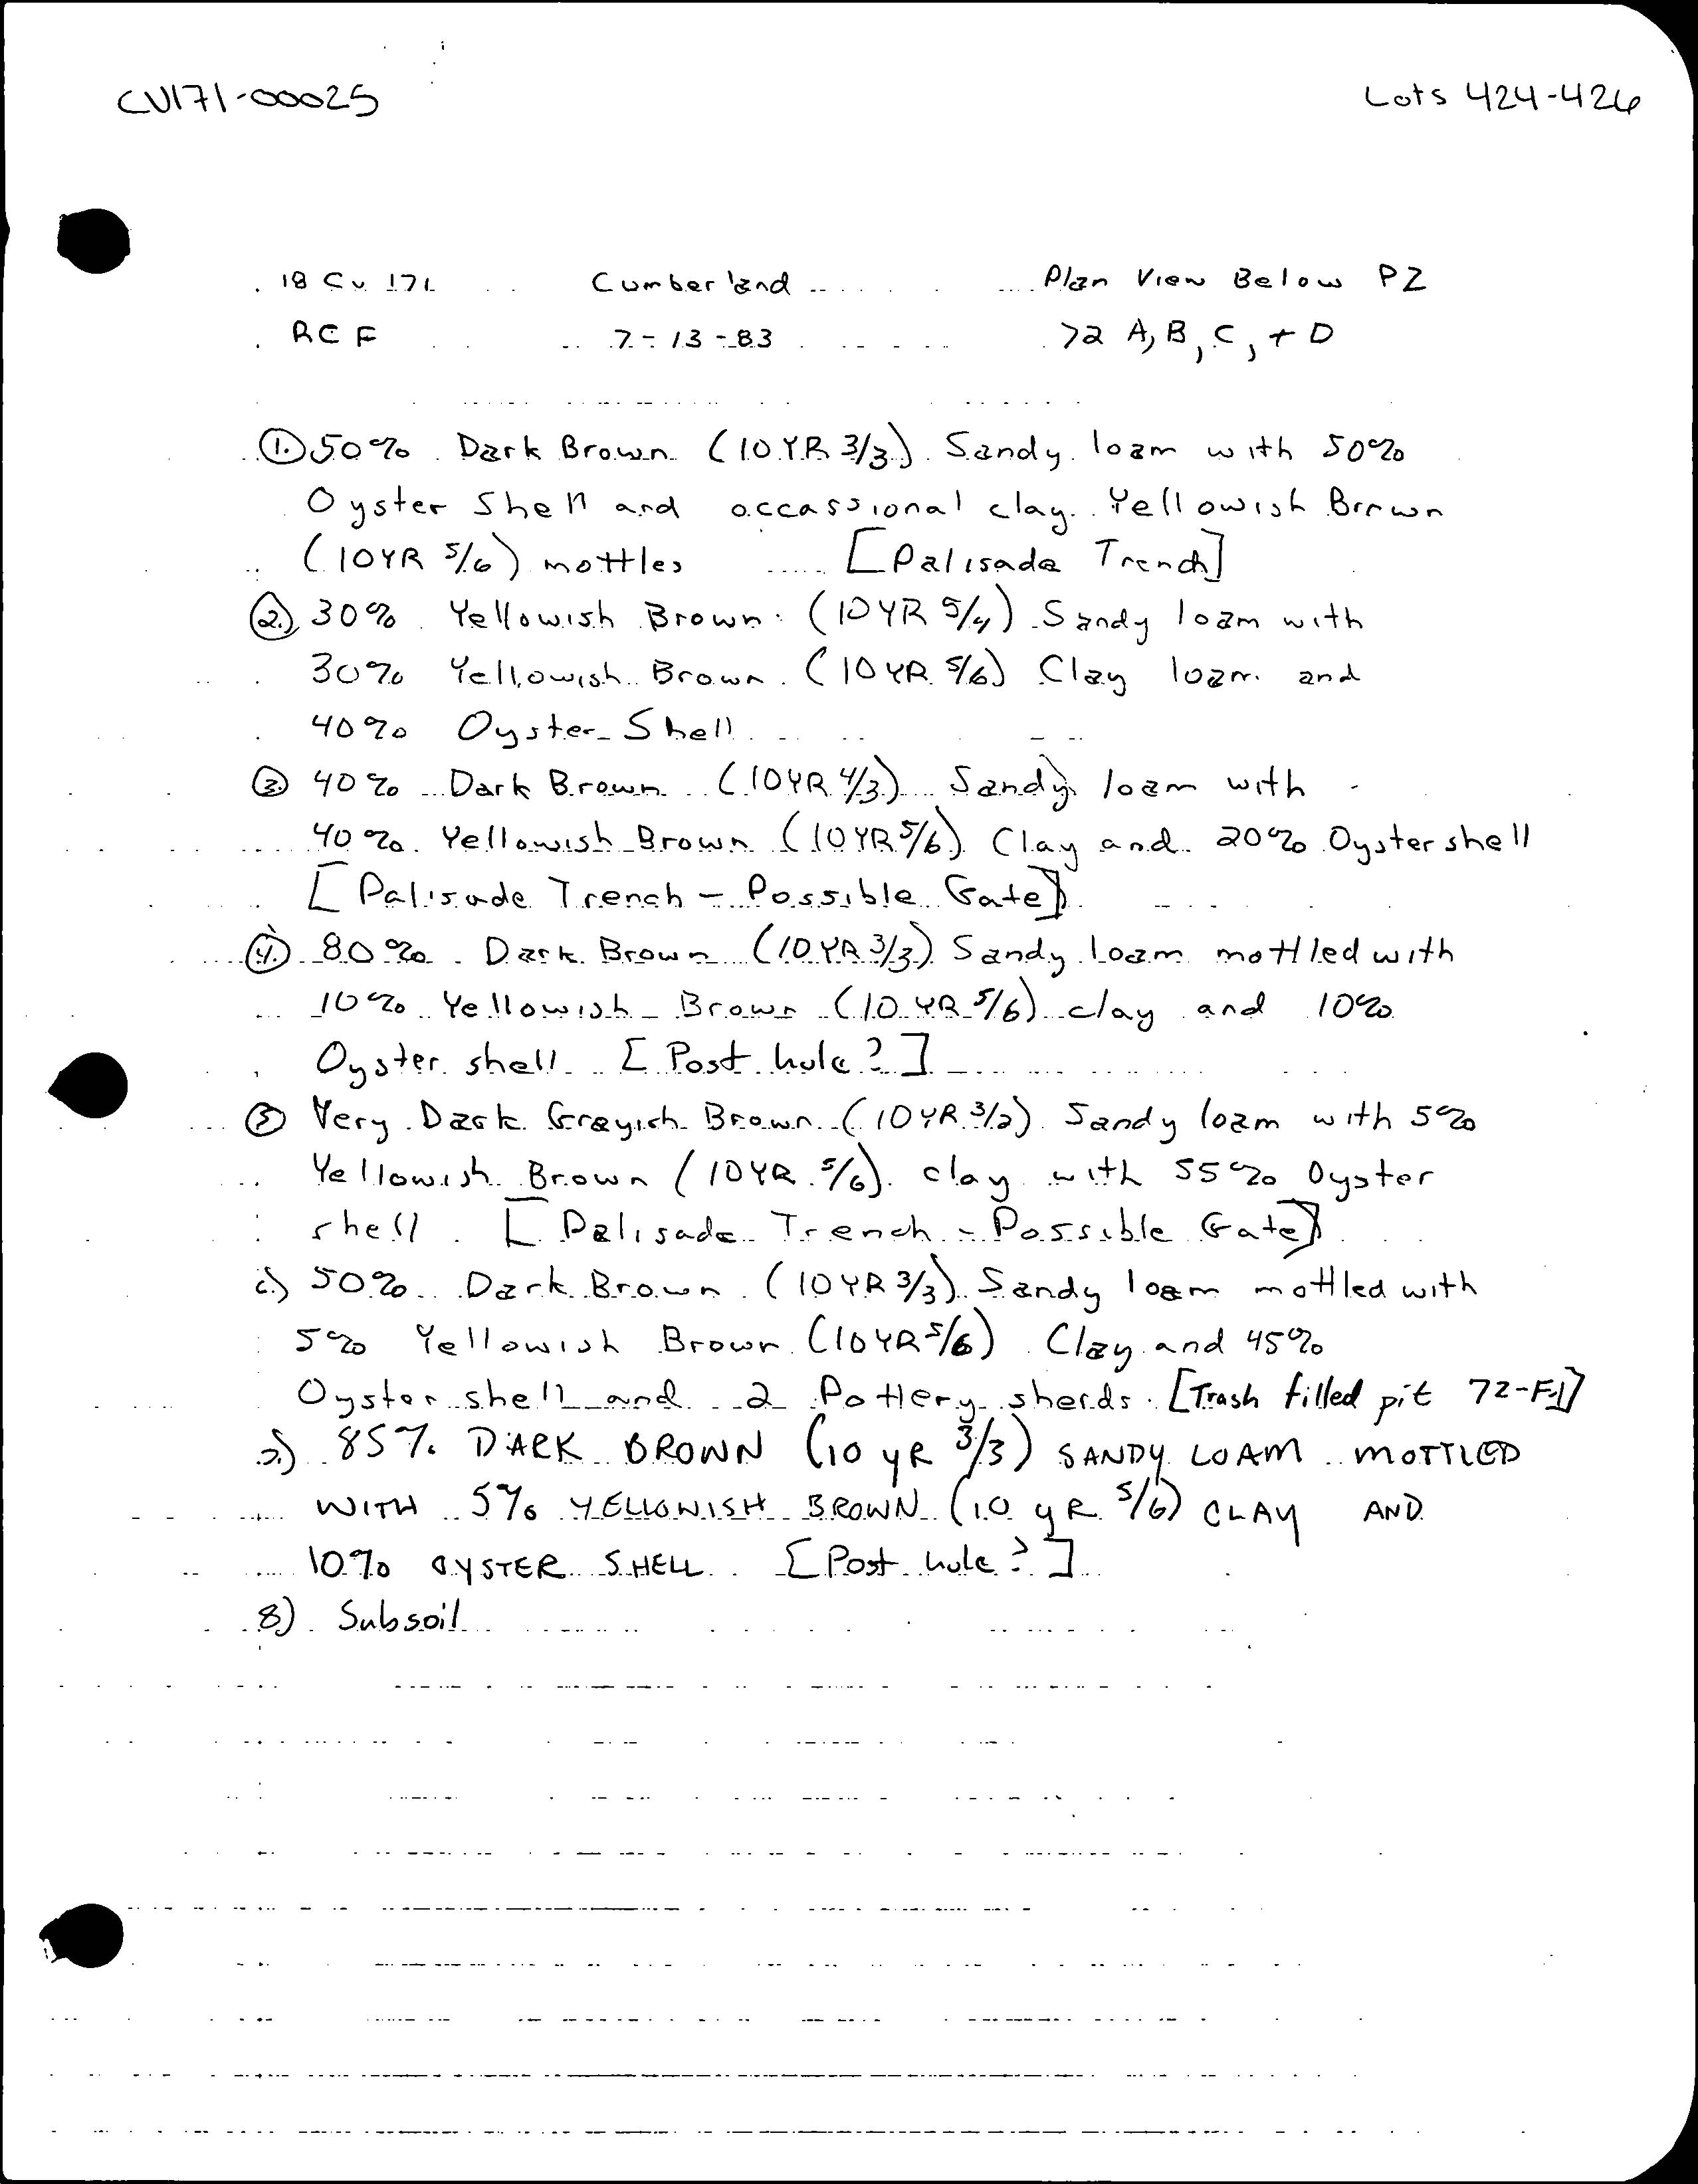 CV171-00025 Lots 424-426
18 Cv 171 Cumberland Plan View Below PZ
RCF 7-13-83 72 A, B, C, + D
1. 50% Dark Brown (10YR 3/3) Sandy loam with 50%
Oyster Shell and occassional clay Yellowish Brown
(10YR 5/6) mottles [Palisade Trench]
2. 30% Yellowish Brown (10YR 5/4) Sandy loam with
30% Yellowish Brown (10YR 5/6) Clay loam and
40% Oyster Shell
3. 40% Dark Brown (10YR 4/3) Sandy loam with
40% Yellowish Brown (10YR 5/6) Clay and 20% Oyster shell
[Palisade Trench - Possible Gate]
4. 80% Dark Brown (10YR 3/3) Sandy loam mottled with
10% Yellowish Brown (10YR 5/6) clay and 10%
Oyster shell [Post hole?]
5 Very Dark Grayish Brown (10YR 3/2) Sandy loam with 5%
Yellowish Brown (10YR 5/6) clay with 55% Oyster
shell. [Palisade Trench - Possible Gate]
6) 50% Dark Brown (10YR 3/3) Sandy loam mottled with
5% Yellowish Brown (10YR 5/6) Clay and 45%
Oyster shell and 2 Pottery sherds. [Trash filled pit 72-F1]
7) 85% DARK BROWN (10 YR 3/3) SANDY LOAM MOTTLED
WITH 5% YELLOWISH BROWN (10 YR 5/6) CLAY AND
10% OYSTER SHELL [Post hole?]
8) Subsoil